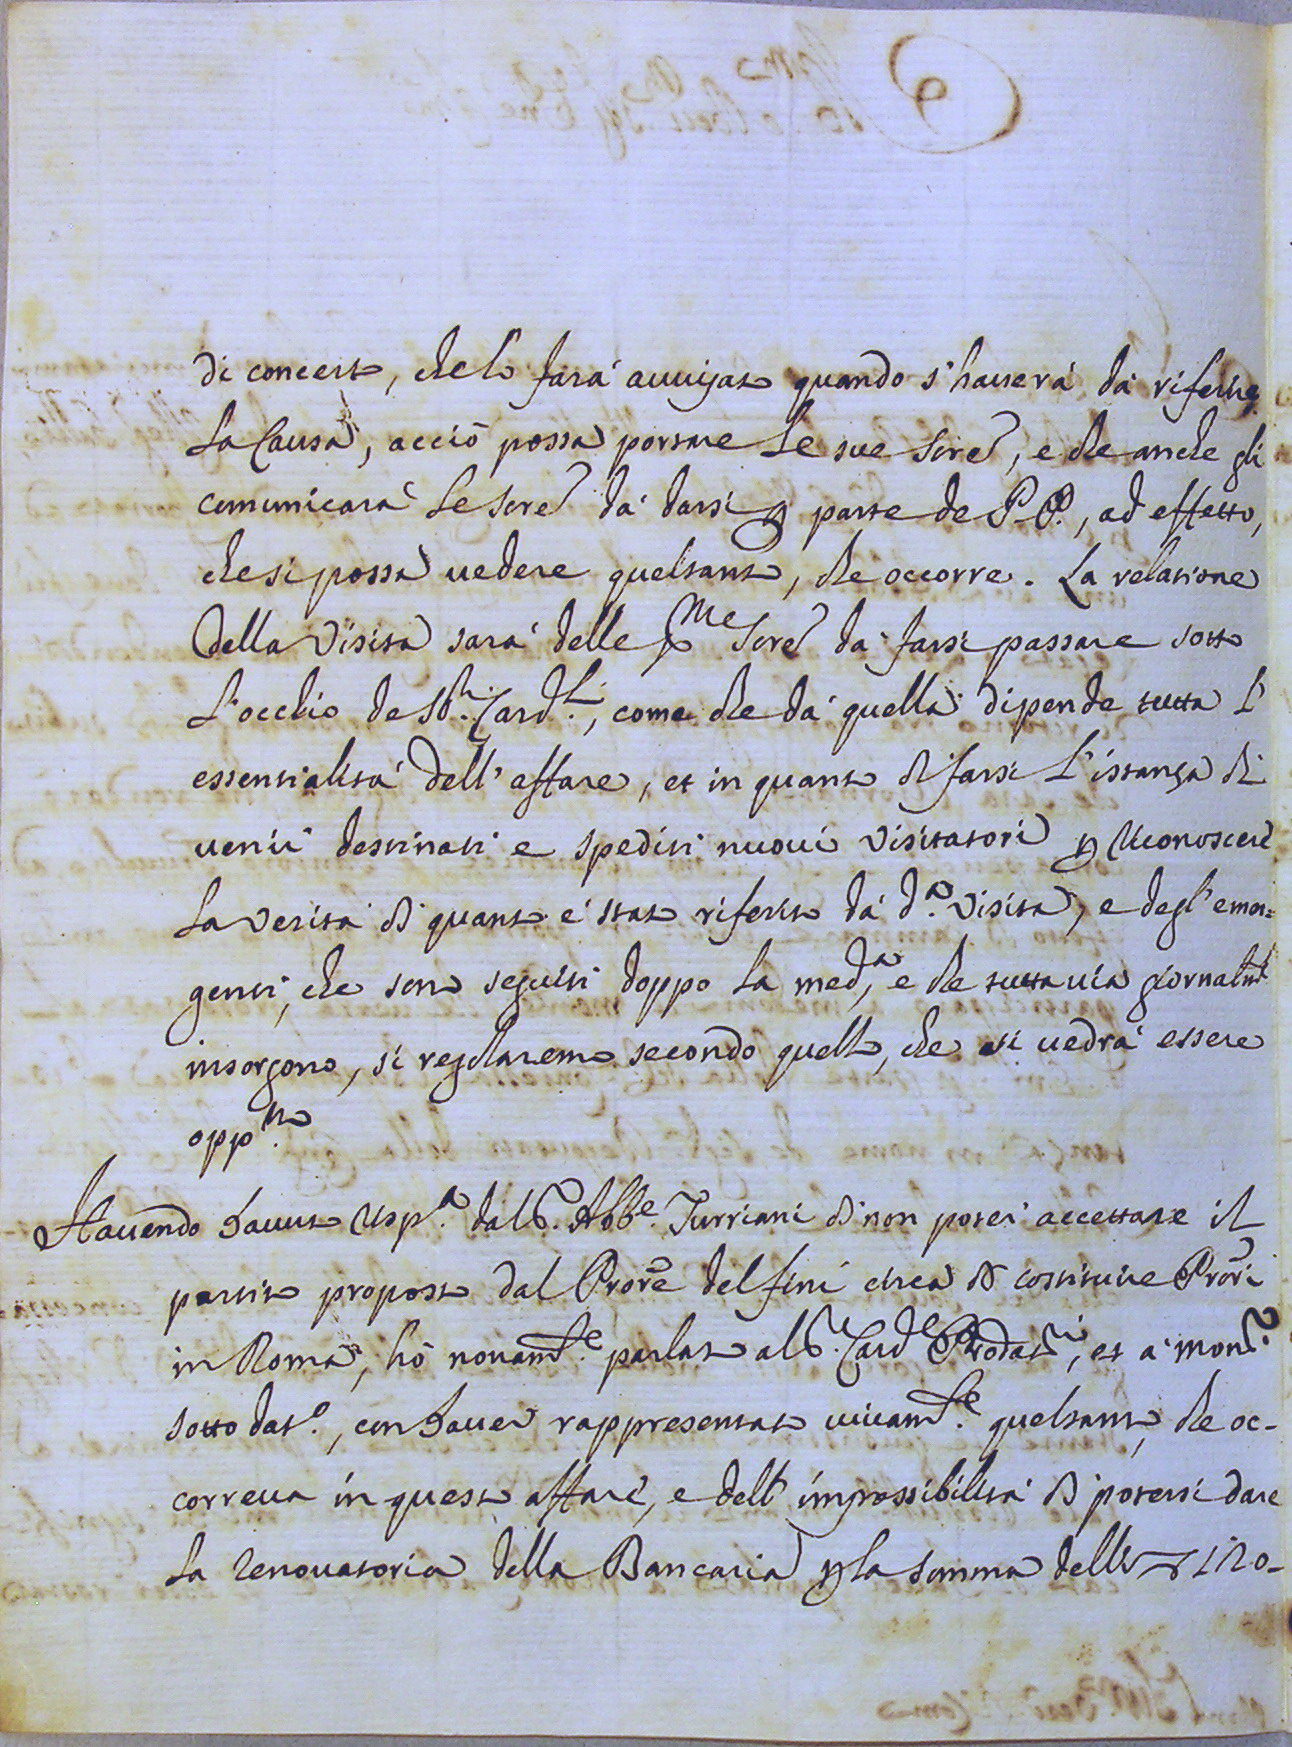 di concerto, che lo farà auuisato quando s'hauerà dà riferire
La Causa, acciò possa portare Le sue scre, e che anche gli
comunicarà Le scre dà darsi p parte de P.P., ad effetto,
che si possa uedere queltanto, che occorre. La relatione
della Visita sarà delle pme scre dà farsi passare sotto
L'occhio de SS.ri Card.li, come che dà quella dipende tutta L'
essentialità dell'affare, et in quanto di farsi L'istanza di
uenir destinati e spediti nuoui Visitatori p riconoscere
La Verità di quanto è stato riferito dà d.a Visita, e degl'emer=
genti, che sono seguiti doppo La med.a, e che tuttauia giornalmte
insorgono, si regolaremo secondo quello, che si uedrà essere
opp.no
Hauendo hauuto Vsp.a dal S.r Abb.e Turriani di non poter accettare il
partito proposto dal Prore Delfini circa di costituire Prori
in Roma, hò nouam.te parlato al S.r Card.e Prodat.rio, et à Mons.r
sotto dat.o, con hauer rappresentato uiuam.te queltanto, che oc-
correua in questo affare, e dell'impossibilità di potersi dare
La renouatoria della Bancaria p la somma delli 120-